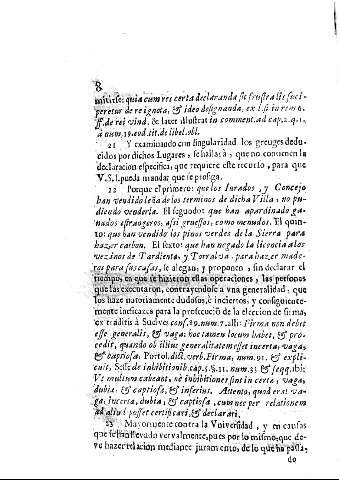 8
mitirse: quia cum res certa declaranda sit frustra lis susci-
peretur de re ignota, & ideo designanda, ex l. si in rem 6.
ff. de rei vind. & latet illustrat in comment. ad cap. 2. q. 1.
à num. 19. eod. tit. de libel. obl.
21 Y examinando con singularidad los greuges dedu-
cidos por dichos Lugares, se hallarà, que no contienen la
declaracion especifica, que requiere este recurso, para que
V.S.I. pueda mandar que se prosiga.
22 Porque el primero: que los Iurados, y Concejo
han vendido leña de los terminos de dicha Villa, no pu-
diendo venderla. El segundo: que han apardinado ga-
nados estrangeros, assi gruessos, como menudos. El quin-
to: que han vendido los pinos verdes de la Sierra para
hazer carbon. El sexto: que han negado la licencia a los
vezinos de Tardienta, y Torralva, para hazer made-
ros para sus casas, se alegan, y proponen, sin declarar el
tiempo, en que se hizieron essas operaciones, las personas
que las executaron, contrayendose à vna generalidad, que
los haze notoriamente dudosos, è inciertos, y consiguiente-
mente ineficazes para la prosecucion de la eleccion de firma,
ex traditis à Suelves cons. 89. num. 7. alli: Firma non debet
esse generalis, & vaga: nec tamen locum habet, & pro-
cedit, quando ob illius generalitatem esset incerta, vaga,
& captiosa. Portol. dict. verb. Firma, num. 91. & expli-
cuit, Sesse de inhibitionib. cap. 5. §. 11. num. 33 & seqq. ibi:
Vt multum cabeant, nè inhibitiones sint in certa, vaga,
dubia, & captiosa, & inferius. Attento, quod erat va-
ga, incerta, dubia, & captiosa, cum nec per relationem
ad aliud posset certificari, & declarari.
23 Mayormente contra la Vniversidad, y en causas
que se han llevado vervalmente, pues por lo mismo, que de-
ve hazer relacion mediante juramento, de lo que ha passa,
do